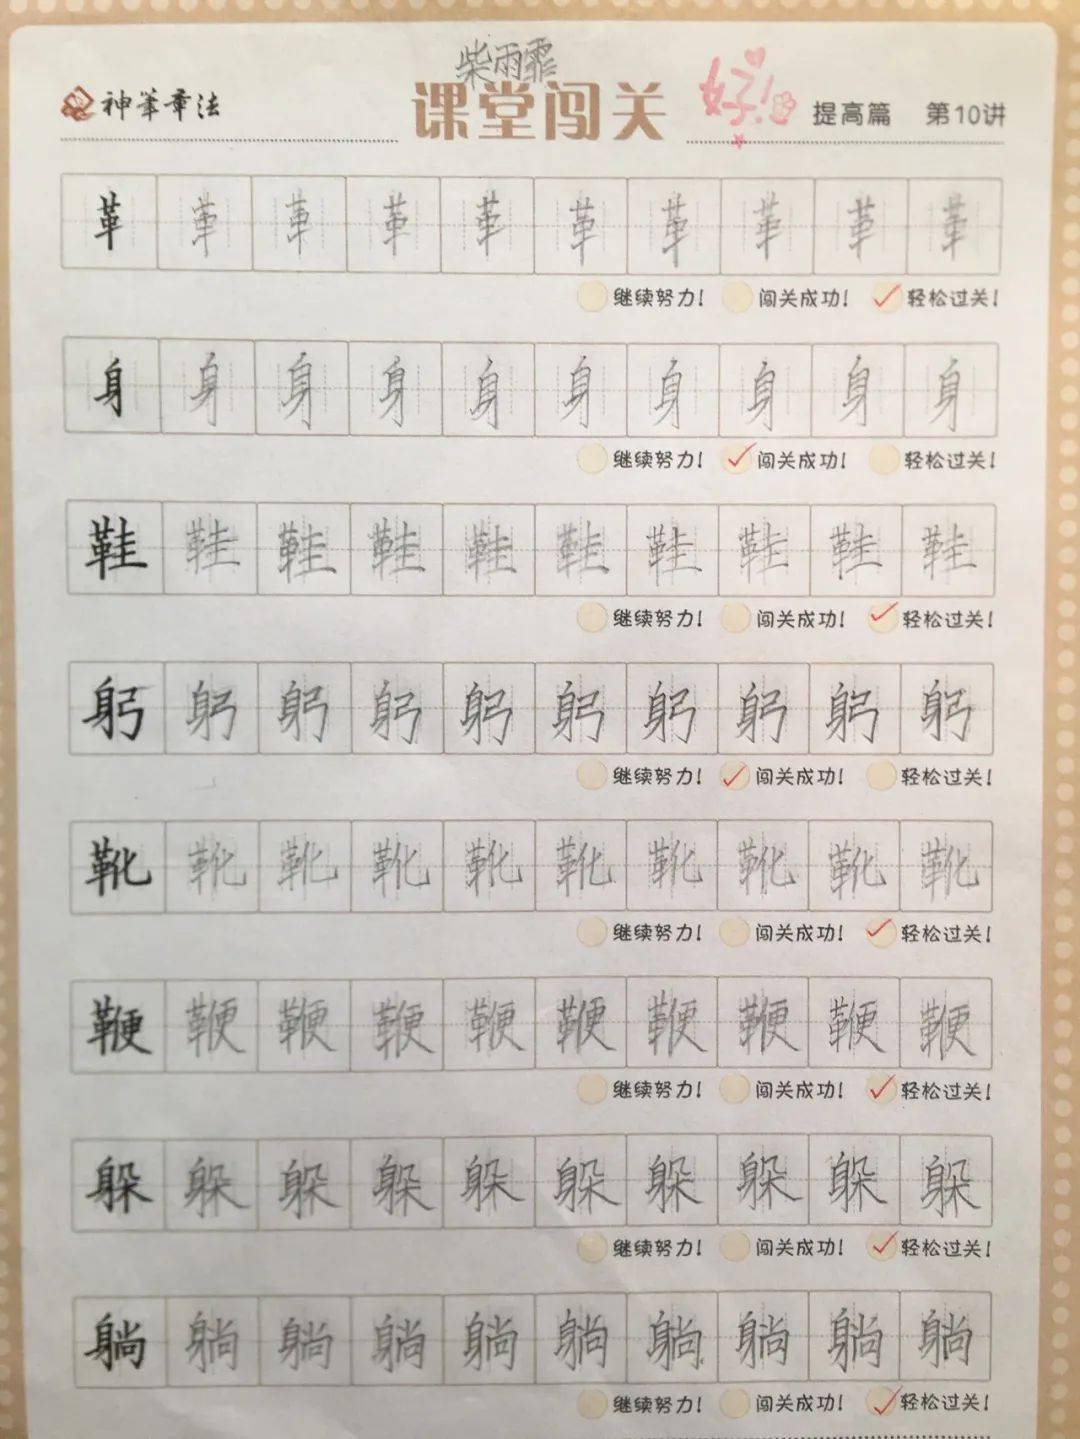 柴雨霏
神笔章法 课堂闯关 好! 提高篇 第10讲
革 革 革 革 革 革 革 革 革 革
继续努力! 闯关成功! 轻松过关!
身 身 身 身 身 身 身 身 身 身
继续努力! 闯关成功! 轻松过关!
鞋 鞋 鞋 鞋 鞋 鞋 鞋 鞋 鞋 鞋
继续努力! 闯关成功! 轻松过关!
躬 躬 躬 躬 躬 躬 躬 躬 躬 躬
继续努力! 闯关成功! 轻松过关!
靴 靴 靴 靴 靴 靴 靴 靴 靴 靴
继续努力! 闯关成功! 轻松过关!
鞭 鞭 鞭 鞭 鞭 鞭 鞭 鞭 鞭 鞭
继续努力! 闯关成功! 轻松过关!
躲 躲 躲 躲 躲 躲 躲 躲 躲 躲
继续努力! 闯关成功! 轻松过关!
躺 躺 躺 躺 躺 躺 躺 躺 躺 躺
继续努力! 闯关成功! 轻松过关!